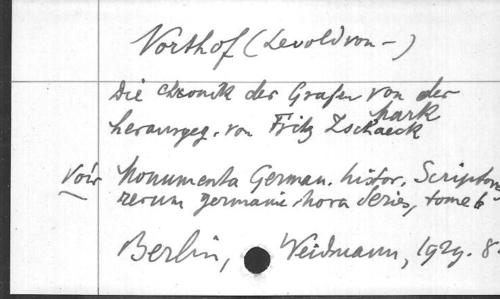 Northof (Levold von –)
Die Chronik der Grafen von der
Mark
herausgeg. von Fritz Zschaeck
Voir Monumenta German. histor. Scriptores
rerum germanic. nova Series, tome 6
Berlin, Weidmann, 1929. 8.